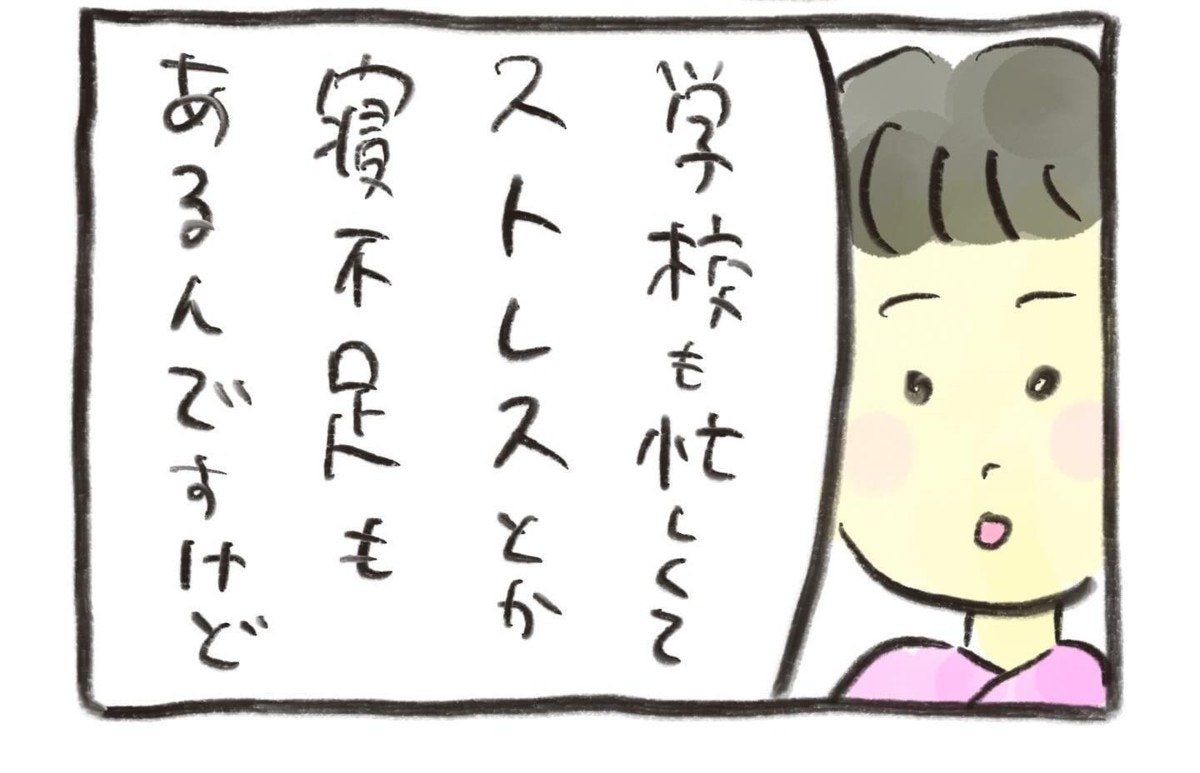 学校も忙しくて
ストレスとか
寝不足も
あるんですけど